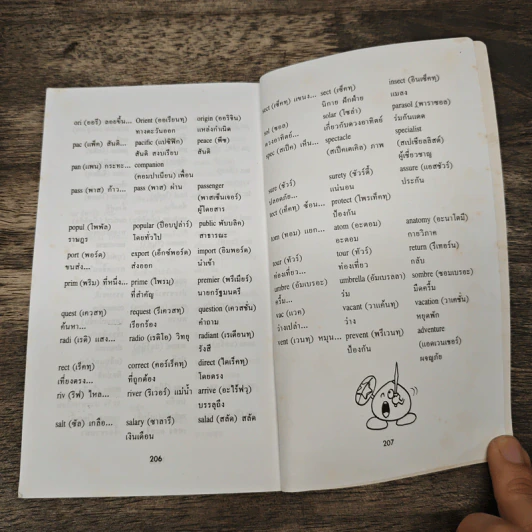 ori (ออริ) ลอยขึ้น... Orient (ออเรียนทฺ) origin (ออริจิน)
ทางตะวันออก แหล่งกำเนิด
pac (แพ็ค) สันติ... pacific (แปซิฟิค) peace (พีซ)
สันติ สงบเงียบ สันติ
pan (แพน) กระทะ... companion
(คอมปาเนียน) เพื่อน
pass (พาส) ก้าว... pass (พาส) ผ่าน passenger
(พาสเซ็นเจอร์)
ผู้โดยสาร
popul (ไพพัล) popular (ป๊อบปูล่าร์) public พับบลิค)
ราษฎร โดยทั่วไป สาธารณะ
port (พอร์ต) export (เอ็กซ์พอร์ต) import (อิมพอร์ต)
ขนส่ง... ส่งออก นำเข้า
prim (พริม) ที่หนึ่ง... prime (ไพรมฺ) premier (พรีเมียร์)
ที่สำคัญ นายกรัฐมนตรี
quest (เควสทฺ) request (รีเควสทฺ) question (เควสชั่น)
ค้นหา... เรียกร้อง คำถาม
radi (เรดิ) แสง... radio (เรดิโอ) วิทยุ radiant (เรเดียนทฺ)
รังสี
rect (เร็คทฺ) correct (คอร์เร็คทฺ) direct (ไดเร็คทฺ)
เที่ยงตรง... ที่ถูกต้อง โดยตรง
riv (ริฟ) ไหล... river (ริเวอร์) แม่น้ำ arrive (อะไร้ฟวฺ)
บรรลุถึง
salt (ซัล) เกลือ... salary (ซาลารี) salad (สลัด) สลัด
เงินเดือน
206
sect (เซ็คทฺ) แขนง... sect (เซ็คทฺ) insect (อินเซ็คทฺ)
นิกาย ฝักฝ่าย แมลง
(ซอล) solar (โซลาร์) parasol (พาราซอล)
เกี่ยวกับดวงอาทิตย์ ร่มกันแดด
spec (สเป็ค) เห็น... spectacle specialist
(สเป็คเตเกิล) ภาพ (สเปเชียลลิสต์)
ผู้เชี่ยวชาญ
sure (ชัวร์) surety (ชัวร์ตี้) assure (แอสชัวร์)
ปลอดภัย... แน่นอน ประกัน
tect (เท็คทฺ) ซ้อน... protect (โพรเท็คทฺ)
ป้องกัน
tom (ทอม) แยก... atom (อะตอม) anatomy (อะนาโตมี)
อะตอม กายวิภาค
tour (ทัวร์) tour (ทัวร์) return (รีเทอร์น)
ท่องเที่ยว... ท่องเที่ยว กลับ
umbre (อัมเบรอะ) umbrella (อัมเบรลลา) sombre (ซอมเบรอะ)
ครึ้ม... ร่ม มืดครึ้ม
vac (แวค) vacant (วาแค้นทฺ) vacation (วาเคชั่น)
ว่างเปล่า... ว่าง หยุดพัก
vent (เวนท) หมุน... prevent (พรีเวนทฺ) adventure
ป้องกัน (แอดเวนเชอร์)
ผจญภัย
207